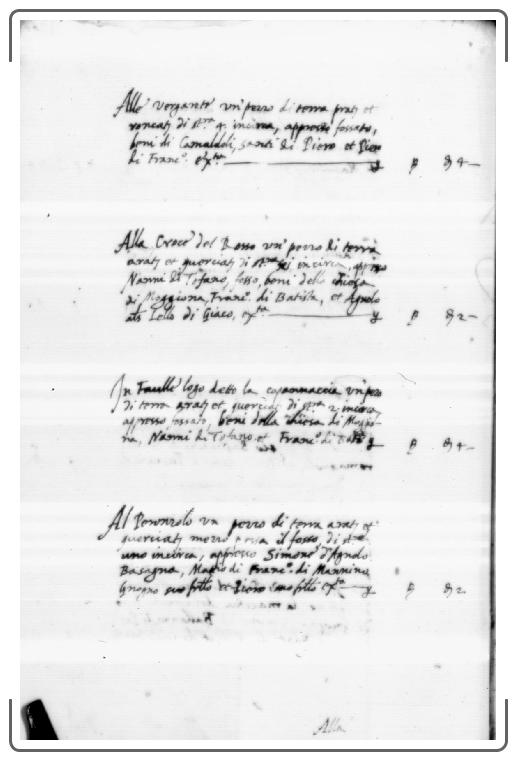 Alle vergante un pezzo di terra prat; et
roncat; di st.ra 4. incirca, appresso fossato,
beni di Camaldoli, santi di Piero et Piero
di Franc.o etc.
Alla Croce del Rosso un pezzo di terra
arat; et querciat; di st.ra sei incirca, appresso
Nanni di Tofano, fosso, beni della chiesa
di Moggiona, Franc.o di Batista, et Agnolo
als Lello di Giaco, etc.
In Faulle logo detto la capannaccia un pezo
di terra arat; et querciat; di st.ra 2 incirca
appresso fossato, beni della chiesa di Moggio-
na, Nanni di Tofano et Franc.o di
Al Peronzolo un pezzo di terra arat; et
querciat; mezzo il fosso, di st.ra
uno incirca, appresso Simone d'Agnolo
Basagna, di Franc.o di Mannino
suo f.llo et Piero suo f.llo etc.
Alla